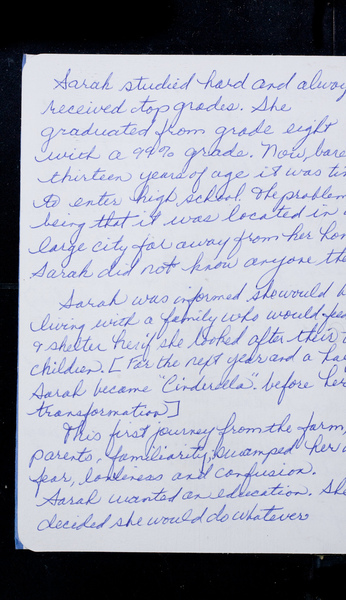 Sarah studied hard and alway
received top grades. She
graduated from grade eight
with a 99% grade. Now, bare
thirteen years of age it was tim
to enter high school. The problem
being that it was located in a
large city far away from her hom
Sarah did not know anyone the
Sarah was informed she would b
living with a family who would fee
& shelter her if she looked after their
children. [For the next year and a ha
Sarah became "Cinderella" before her
transformation]
This first journey from the farm,
parents, familiarity, swamped her
fear, lonliness and confusion.
Sarah wanted an education. She
decided she would do whatever